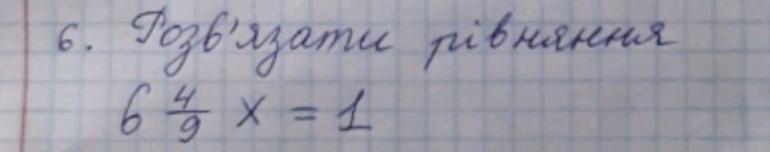 6. Розв'язати рівняння
6 4/9 x = 1